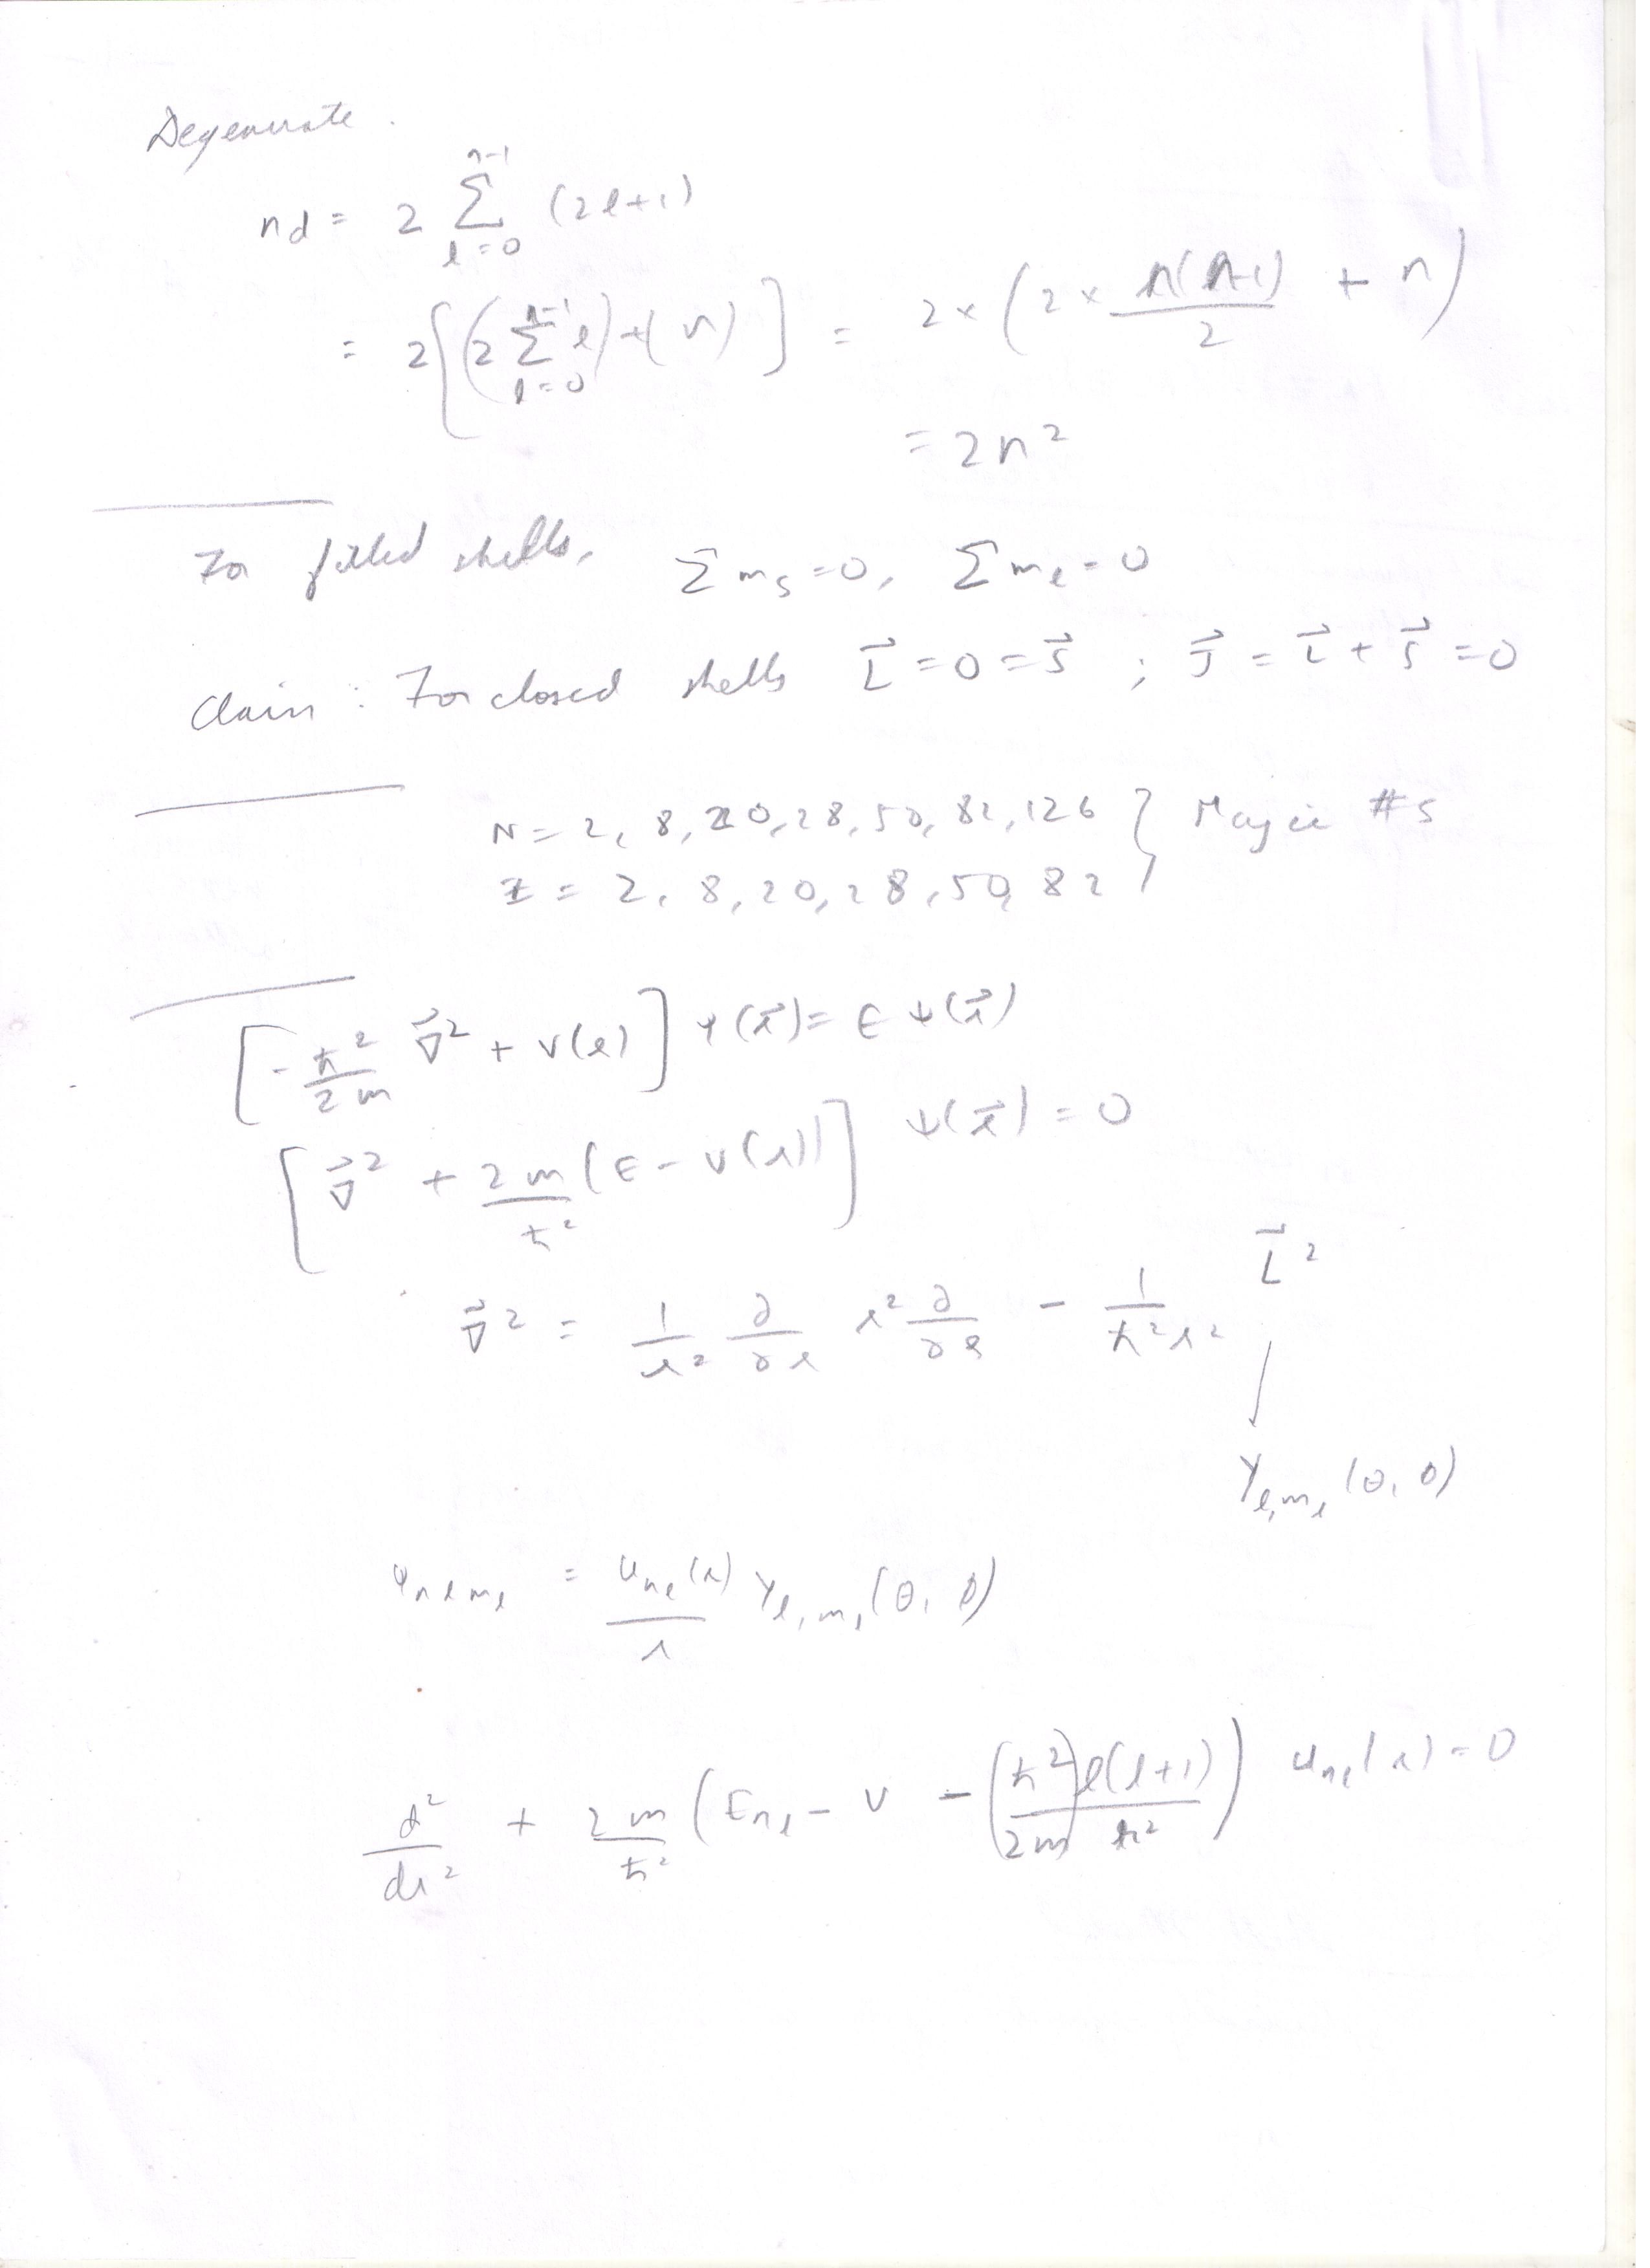 Degenerate.
nd = 2 Σ_{l=0}^{n-1} (2l+1)
= 2[(2 Σ_{l=0}^{n-1} l) + (n)] = 2×(2× n(n-1)/2 + n)
= 2n²
For filled shells, Σ m_s = 0, Σ m_l = 0
Claim : For closed shells L⃗ = 0 = S⃗ ; J⃗ = L⃗ + S⃗ = 0
N = 2, 8, 20, 28, 50, 82, 126 } Magic #s
Z = 2, 8, 20, 28, 50, 82
[-ħ²/2m ∇⃗² + V(r)] ψ(r⃗) = E ψ(r⃗)
[∇⃗² + 2m/ħ² (E - V(r))] ψ(r⃗) = 0
∇⃗² = 1/r² ∂/∂r r² ∂/∂r - 1/ħ²r² L⃗²
Y_{l,m_l} (θ, φ)
ψ_{nlm_l} = u_{nl}(r)/r Y_{l,m_l} (θ, φ)
d²/dr² + 2m/ħ² (E_{nl} - V - (ħ²/2m) l(l+1)/r²) u_{nl}(r) = 0